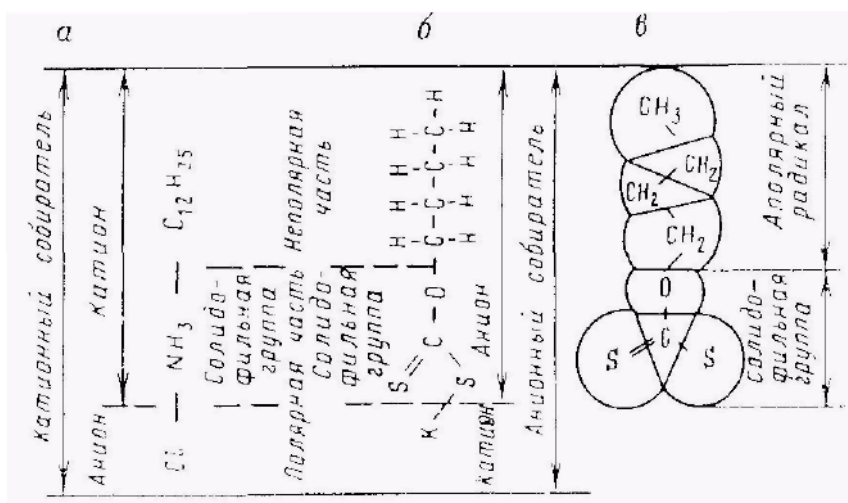 а
б
в
Катионный собиратель
Катион
Анион
C12H25
NH3
Cl
Солидо-
фильная
группа
Неполярная
часть
Полярная часть
Солидо-
фильная
группа
H H H H
H-C-C-C-C-H
H H H H
O
C
S
S
K
Анион
Катион
Анионный собиратель
CH3
CH2
CH2
CH2
O
C
S
S
Аполярный
радикал
Солидо-
фильная
группа